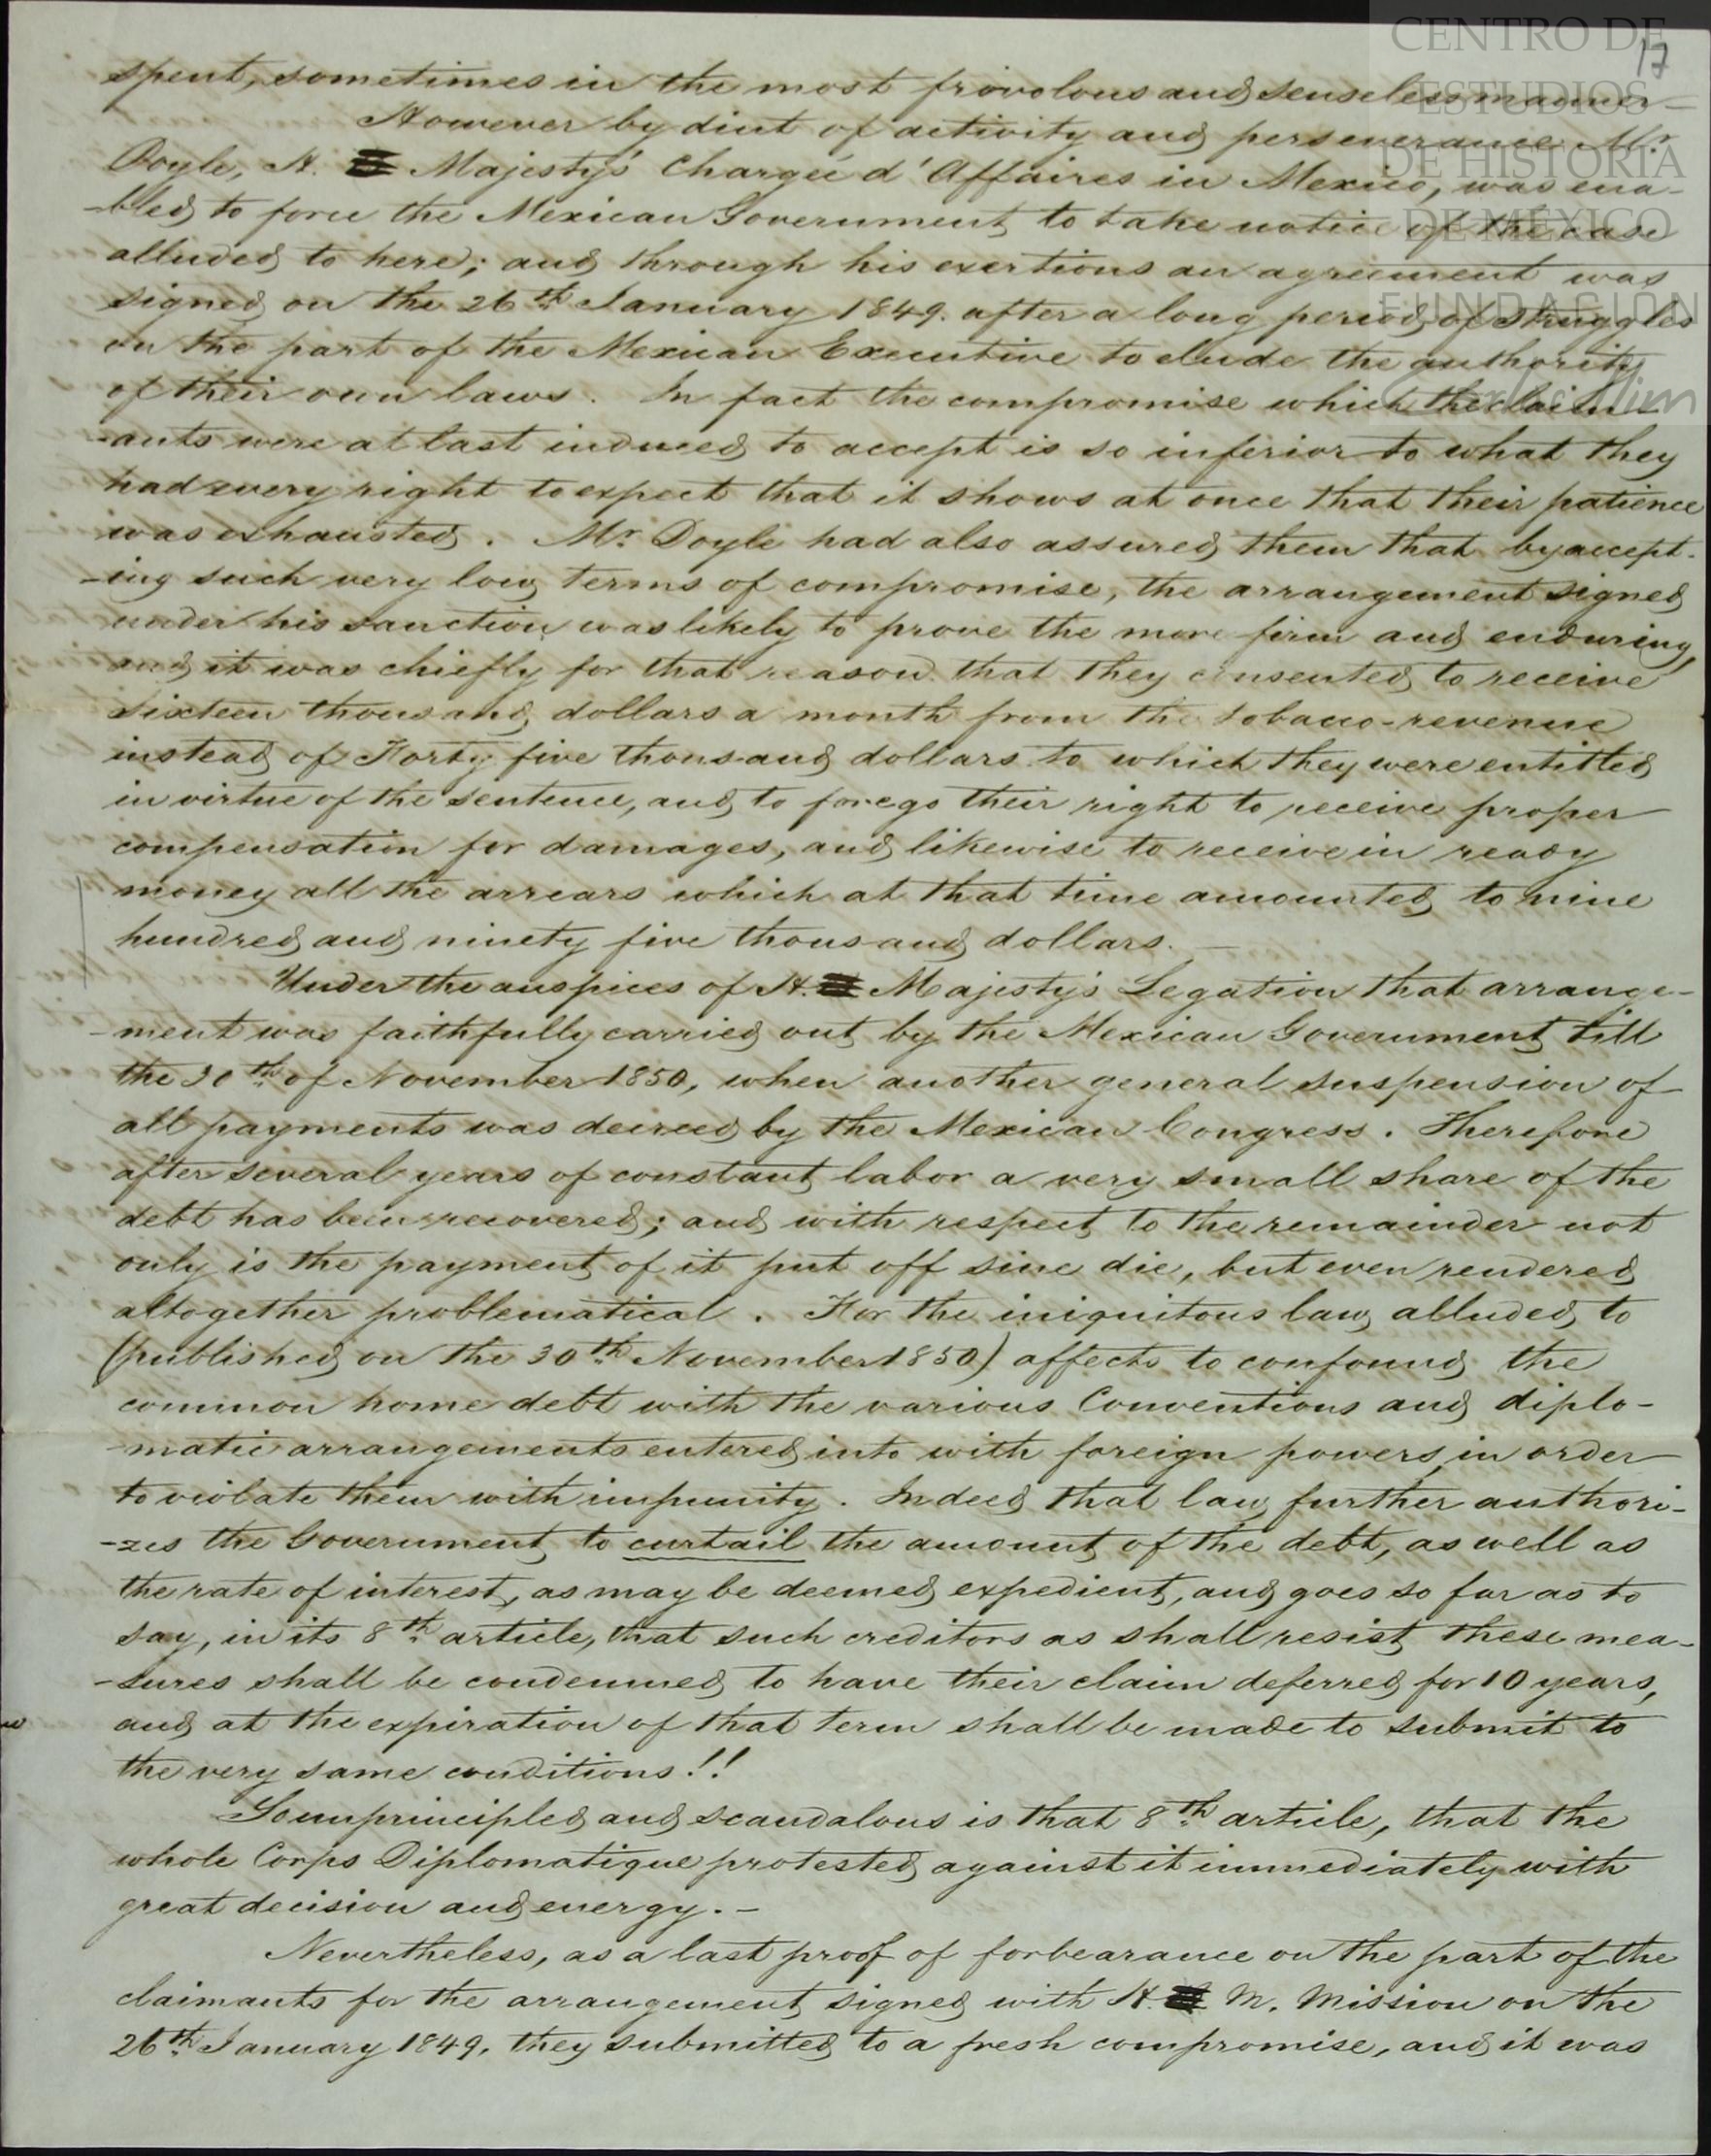 CENTRO DE
ESTUDIOS
DE HISTORIA
DE MÉXICO
FUNDACIÓN
Carlos Slim
17
spent, sometimes in the most frivolous and senseless manner –
However by dint of activity and perseverance Mr.
Doyle, H. Majesty's Chargée d'Affaires in Mexico, was ena-
-bled to force the Mexican Government to take notice of the case
alluded to here; and through his exertions an agreement was
signed on the 26th January 1849. after a long period of struggles
on the part of the Mexican Executive to elude the authority
of their own laws. In fact the compromise which the claim-
-ants were at last induced to accept is so inferior to what they
had every right to expect that it shows at once that their patience
was exhausted. Mr. Doyle had also assured them that by accept-
-ing such very low terms of compromise, the arrangement signed
under his sanction was likely to prove the more firm and enduring,
and it was chiefly for that reason that they consented to receive
sixteen thousand dollars a month from the tobacco-revenue
instead of Forty five thousand dollars to which they were entitled
in virtue of the sentence, and to forego their right to receive proper
compensation for damages, and likewise to receive in ready
money all the arrears which at that time amounted to nine
hundred and ninety five thousand dollars. –
Under the auspices of H. Majesty's Legation that arrange-
-ment was faithfully carried out by the Mexican Government till
the 30th of November 1850, when another general suspension of
all payments was decreed by the Mexican Congress. Therefore
after several years of constant labor a very small share of the
debt has been recovered; and with respect to the remainder not
only is the payment of it put off sine die, but even rendered
altogether problematical. For the iniquitous law alluded to
(published on the 30th November 1850) affects to confound the
common home debt with the various Conventions and diplo-
-matic arrangements entered into with foreign powers, in order
to violate them with impunity. Indeed that law further authori-
-zes the Government to curtail the amount of the debt, as well as
the rate of interest, as may be deemed expedient, and goes so far as to
say, in its 8th article, that such creditors as shall resist these mea-
-sures shall be condemned to have their claim deferred for 10 years,
and at the expiration of that term shall be made to submit to
the very same conditions!!
So unprincipled and scandalous is that 8th article, that the
whole Corps Diplomatique protested against it immediately with
great decision and energy. –
Nevertheless, as a last proof of forbearance on the part of the
claimants for the arrangement signed with H. M. Mission on the
26th January 1849, they submitted to a fresh compromise, and it was